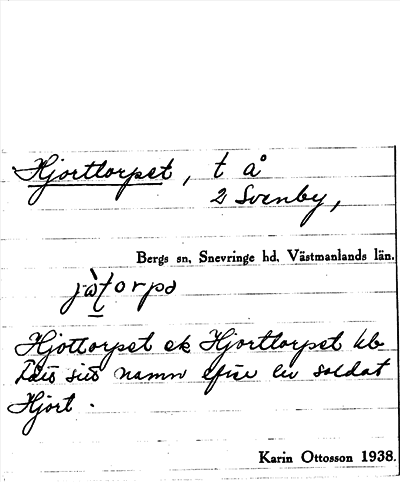 Hjorttorpet, t å
2 Svenby,
Bergs sn, Snevringe hd, Västmanlands län.
Hjottorpet ek Hjorttorpet kb
sitt namn efter en soldat
Hjort.
Karin Ottosson 1938.